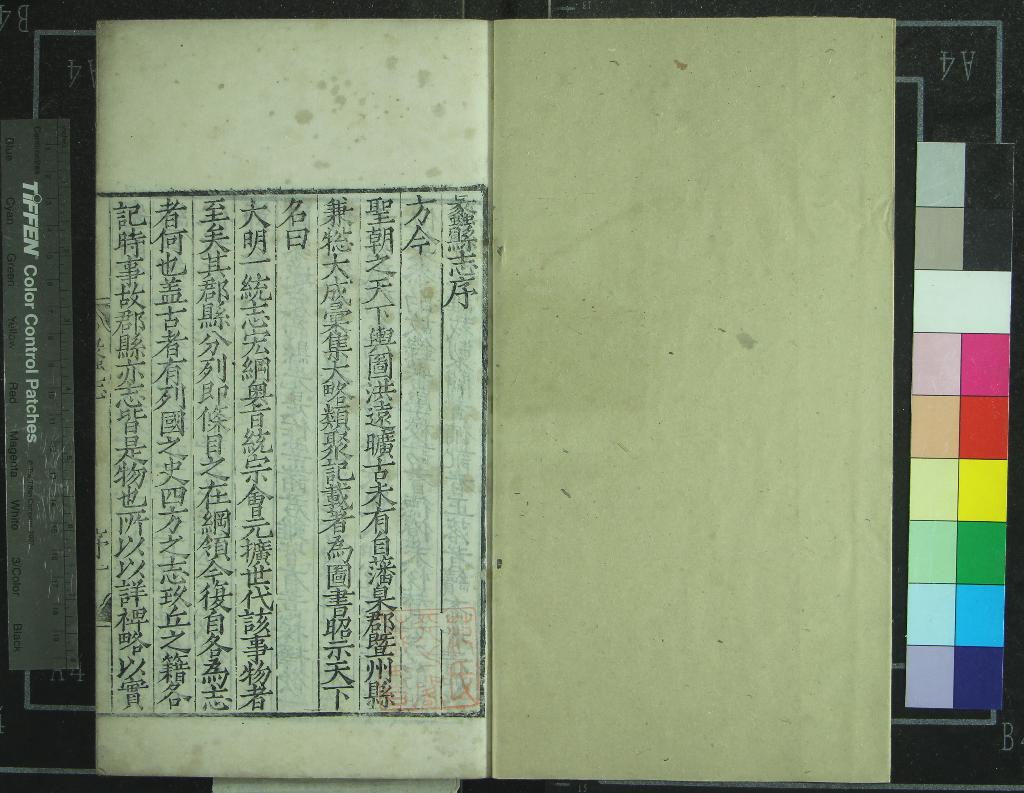 蠡縣志序
方今
聖朝之天下輿圖洪遠曠古未有自藩臬郡暨州縣
兼總大成彙集大略類聚記載者為圖書昭示天下
名曰
大明一統志宏綱奧旨統宗會元擴世代該事物者
至矣其郡縣分列即條目之在綱領今復自各為志
者何也蓋古者有列國之史四方之志玖丘之籍各
記時事故郡縣亦志皆是物也所以以詳裨略以實
TIFFEN Color Control Patches
Blue
Cyan
Green
Yellow
Red
Magenta
White
3/Color
Black
Centimetres
A4
A4
B4
B4